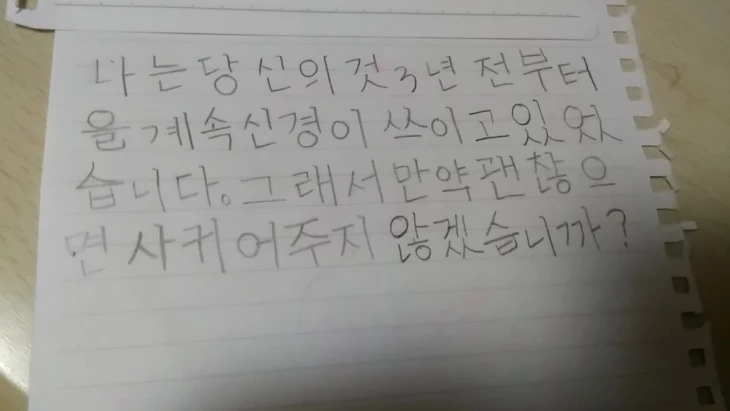 나는당신의것3년전부터
을계속신경이쓰이고있었
습니다.그래서만약괜찮으
면사귀어주지않겠습니까?